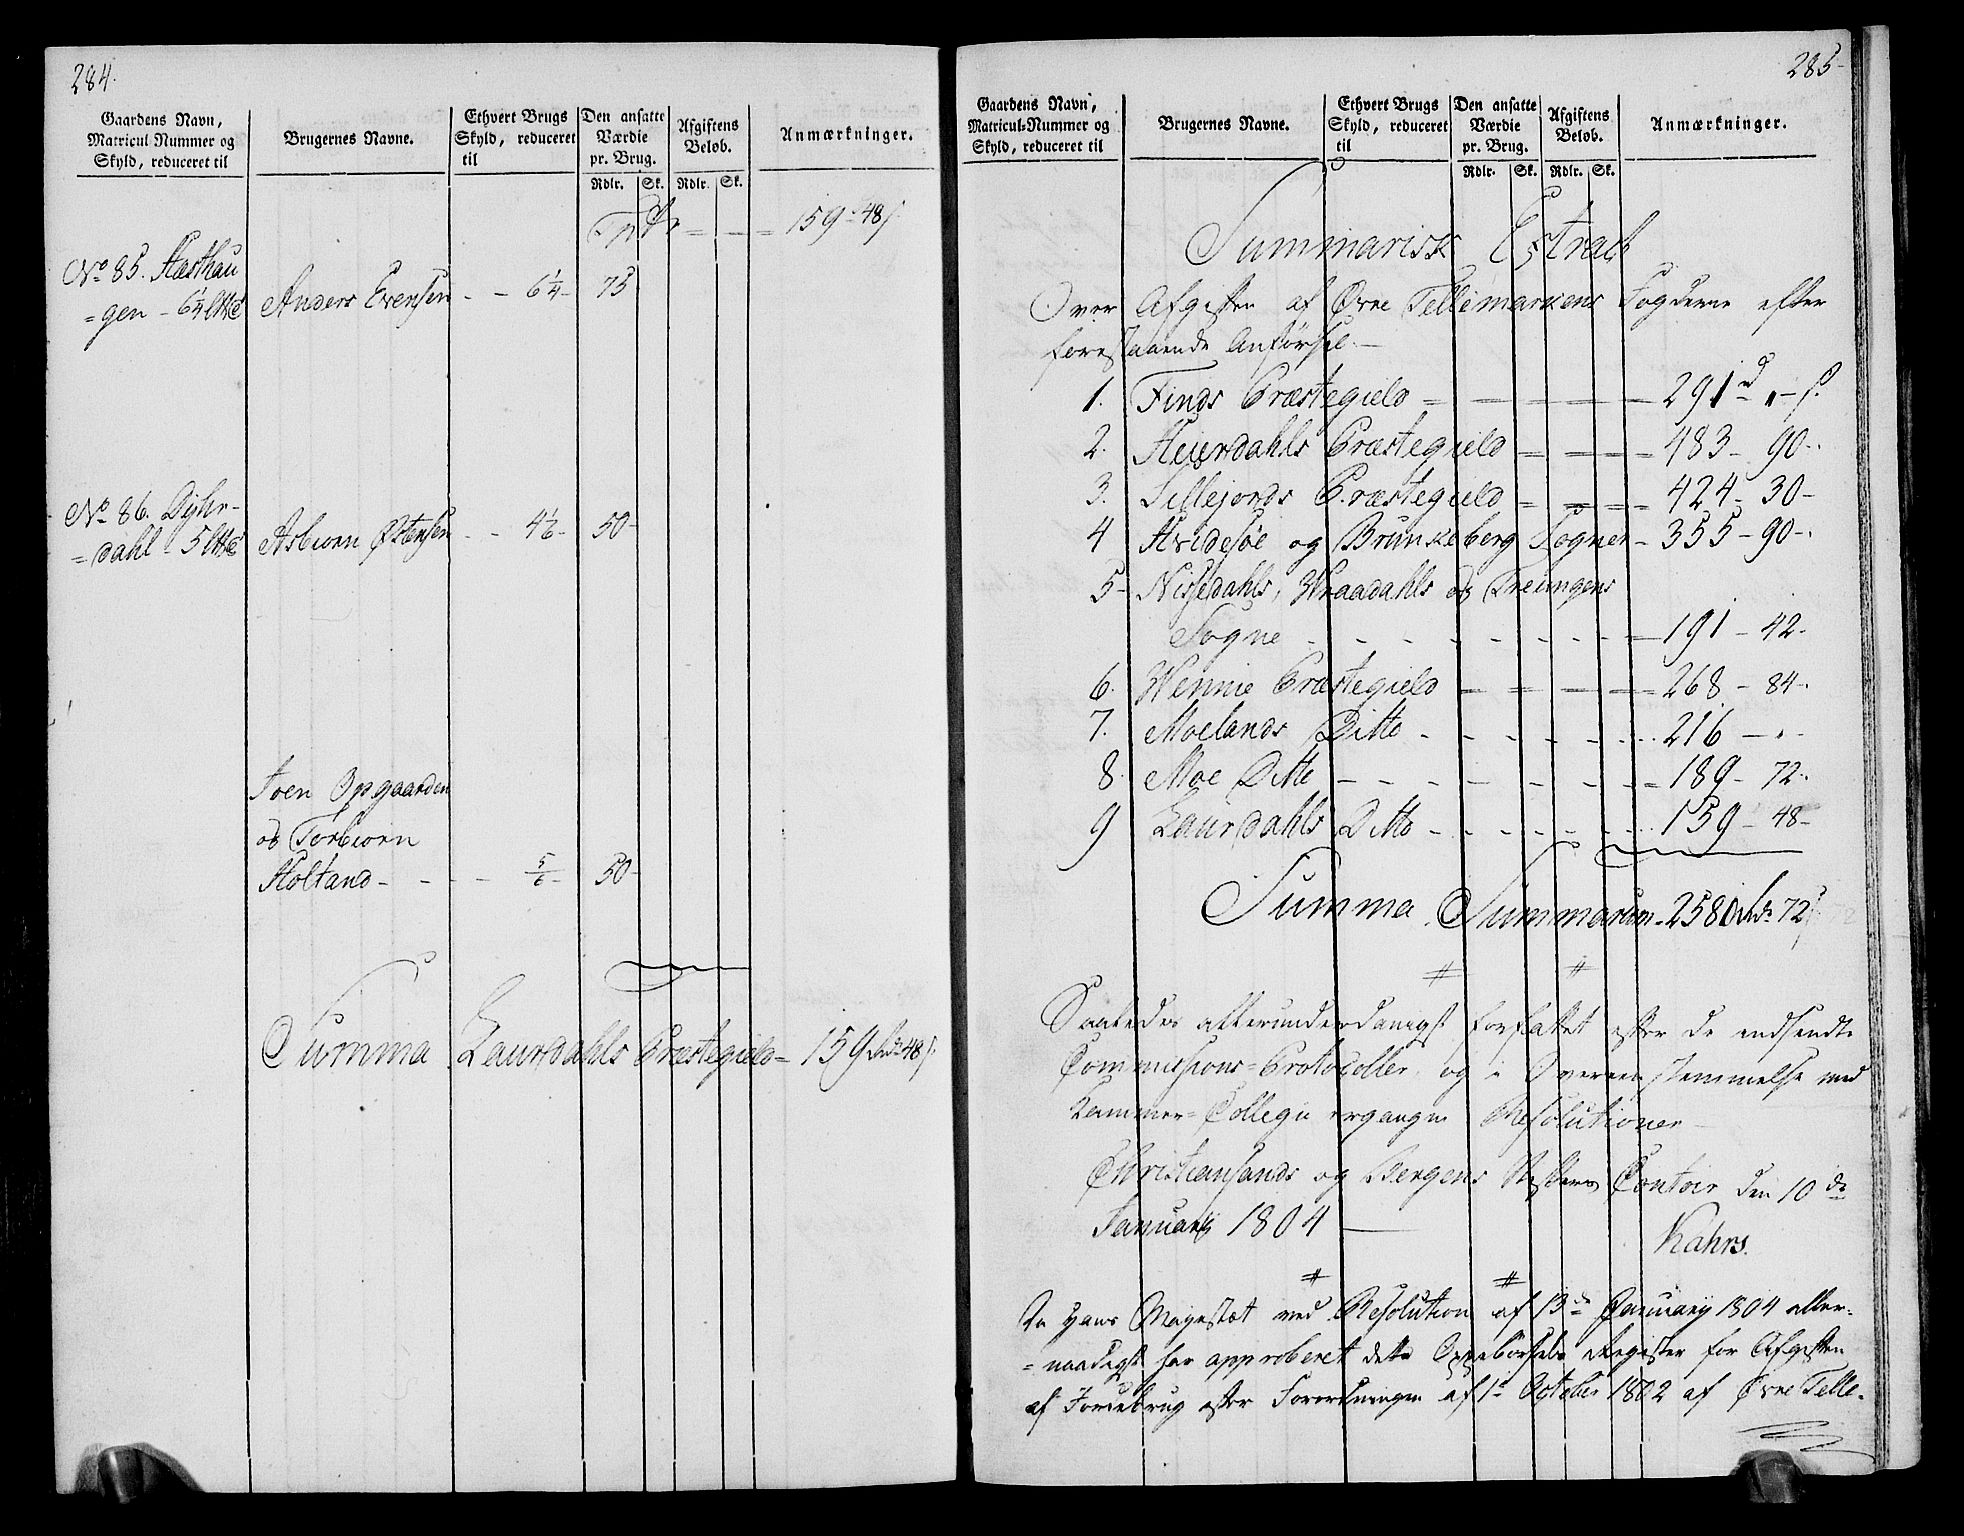 284.
Gaardens Navn, Matricul Nummer og Skyld, reduceret til
Brugernes Navne.
Ethvert Brugs Skyld, reduceret til
Den ansatte Værdie pr. Brug.
Afgiftens Beløb.
Anmærkninger.
Rdlr. Sk. Rdlr. Sk.
159 - 48 s.
No 85. Hæsthau
=gen - 6¼ Anders Evensen - - 6¼ - 75
No 86. Dyhr-
=dahl - 5 Asbiørn Østensen - - 4⅙ - 50 -
Joen Opgaarden
og Torbiørn
Holtand - - - - 5/6 - 50 -
Summa Laurdahls Præstegield = 159 rd 48 s.
285
Gaardens Navn, Matricul-Nummer og Skyld, reduceret til
Brugernes Navne.
Ethvert Brugs Skyld, reduceret til
Den ansatte Værdie pr. Brug.
Afgiftens Beløb.
Anmærkninger.
Rdlr. Sk. Rdlr. Sk.
Summarisk Extract
Over Afgiften af Øvre Tellemarkens Fogderie efter
forestaaende Anførsel. -
1. Tinds Præstegield - - - 291 rd " - s.
2. Heierdahls Præstegield - - - 483 - 90 -
3. Sillejords Præstegield - - - 424 - 30 -
4 Hvidesøe og Brunkeberg Sogner - 355 - 90 -
5 - Nissedahls, Wraadahls og Treungens
Sogne - - - 191 - 42 -
6. Wennie Præstegield - - - 268 - 84 -
7. Moelands Ditto - - - 216 - " -
8 Moe Ditto - - - 189 - 72 -
9 Laurdahls Ditto - - - 159 - 48 -
Summa Summarum - 2580 rd 72 s
Saaledes allerunderdanigst forfattet efter de indsendte
Commissions-Protocoller, og i Overeensstemmelse med
Kammer-Collegii ergangne Resolutioner -
Christiansands og Bergens Stifters Contoir den 10 de
Januarÿ 1804 -
Kahrs.
Da Hans Majestæt ved Resolution af 13 de Januarÿ 1804 aller-
=naadigst har approberet dette Oppebørsels Register for Afgiften
af Jordebrug efter Forordningen af 1te October 1802 af Øvre Telle-